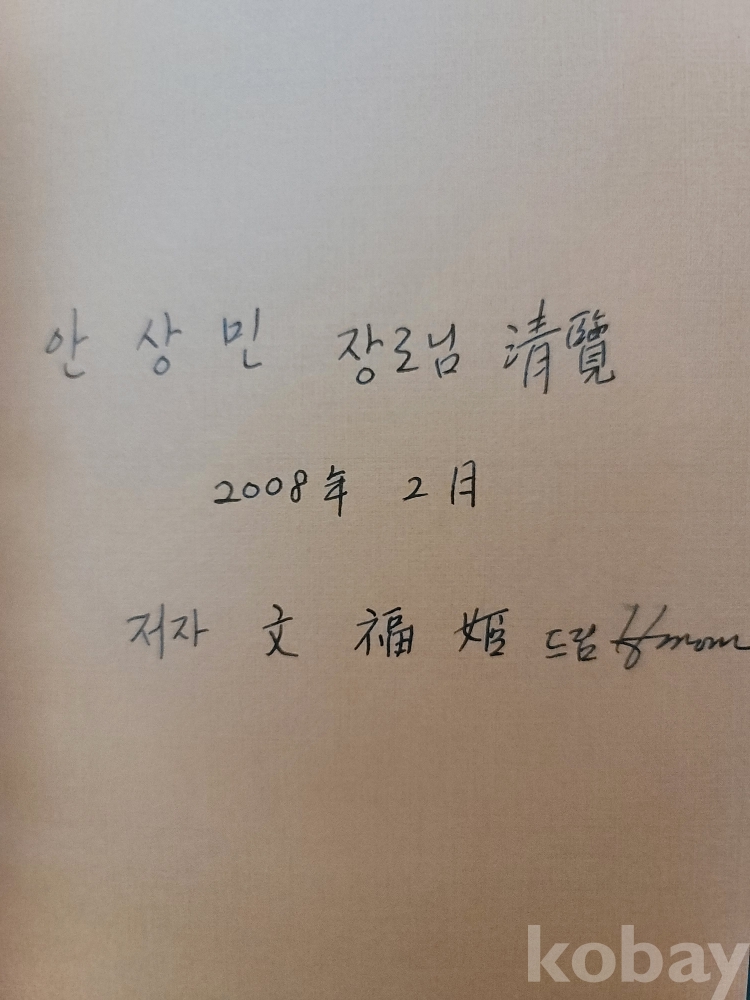 안 상 민 장로님 清覽
2008年 2月
저자 文 福 姬 드림
kobay